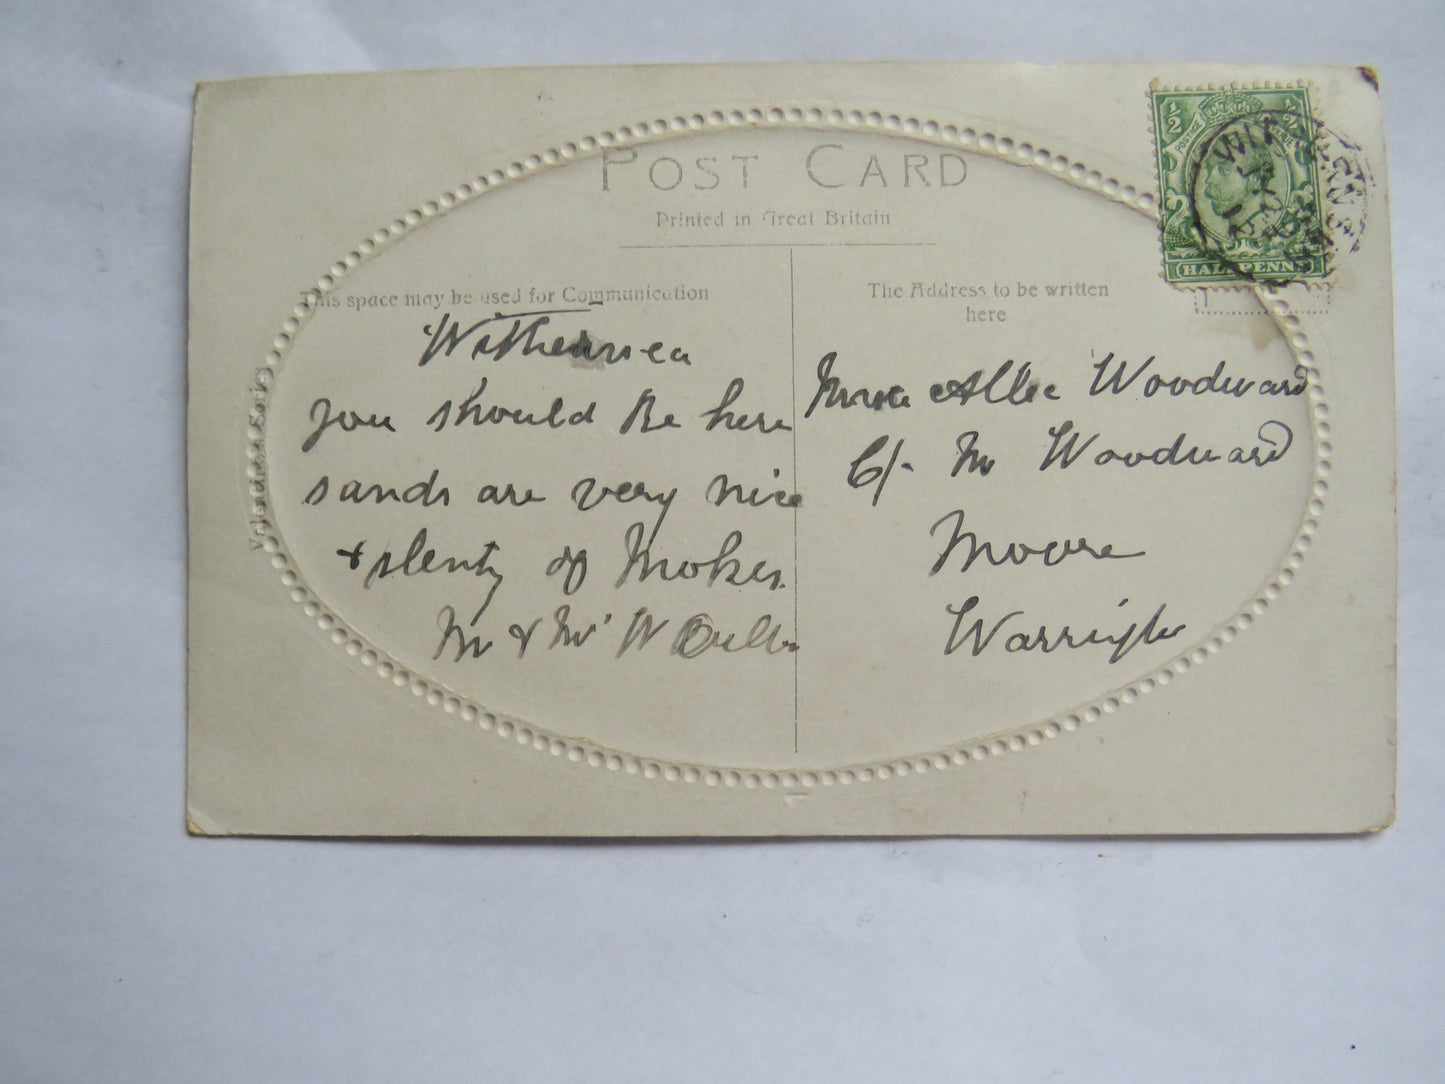 POST CARD
Printed in Great Britain
This space may be used for Communication
The Address to be written
here
Withernsea
you should Be here
sands are very nice
& plenty of Mokes.
Mr & Mrs W
Allie Woodward
C/- Mr Woodward
Moore
Warrington
Series
1/2 1/2
POSTAGE
HALFPENNY